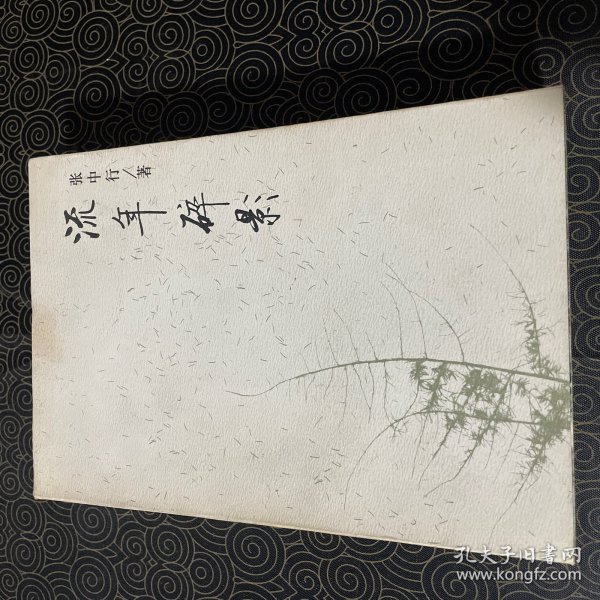 张中行/著
流年碎影
孔夫子旧書网
www.kongfz.com